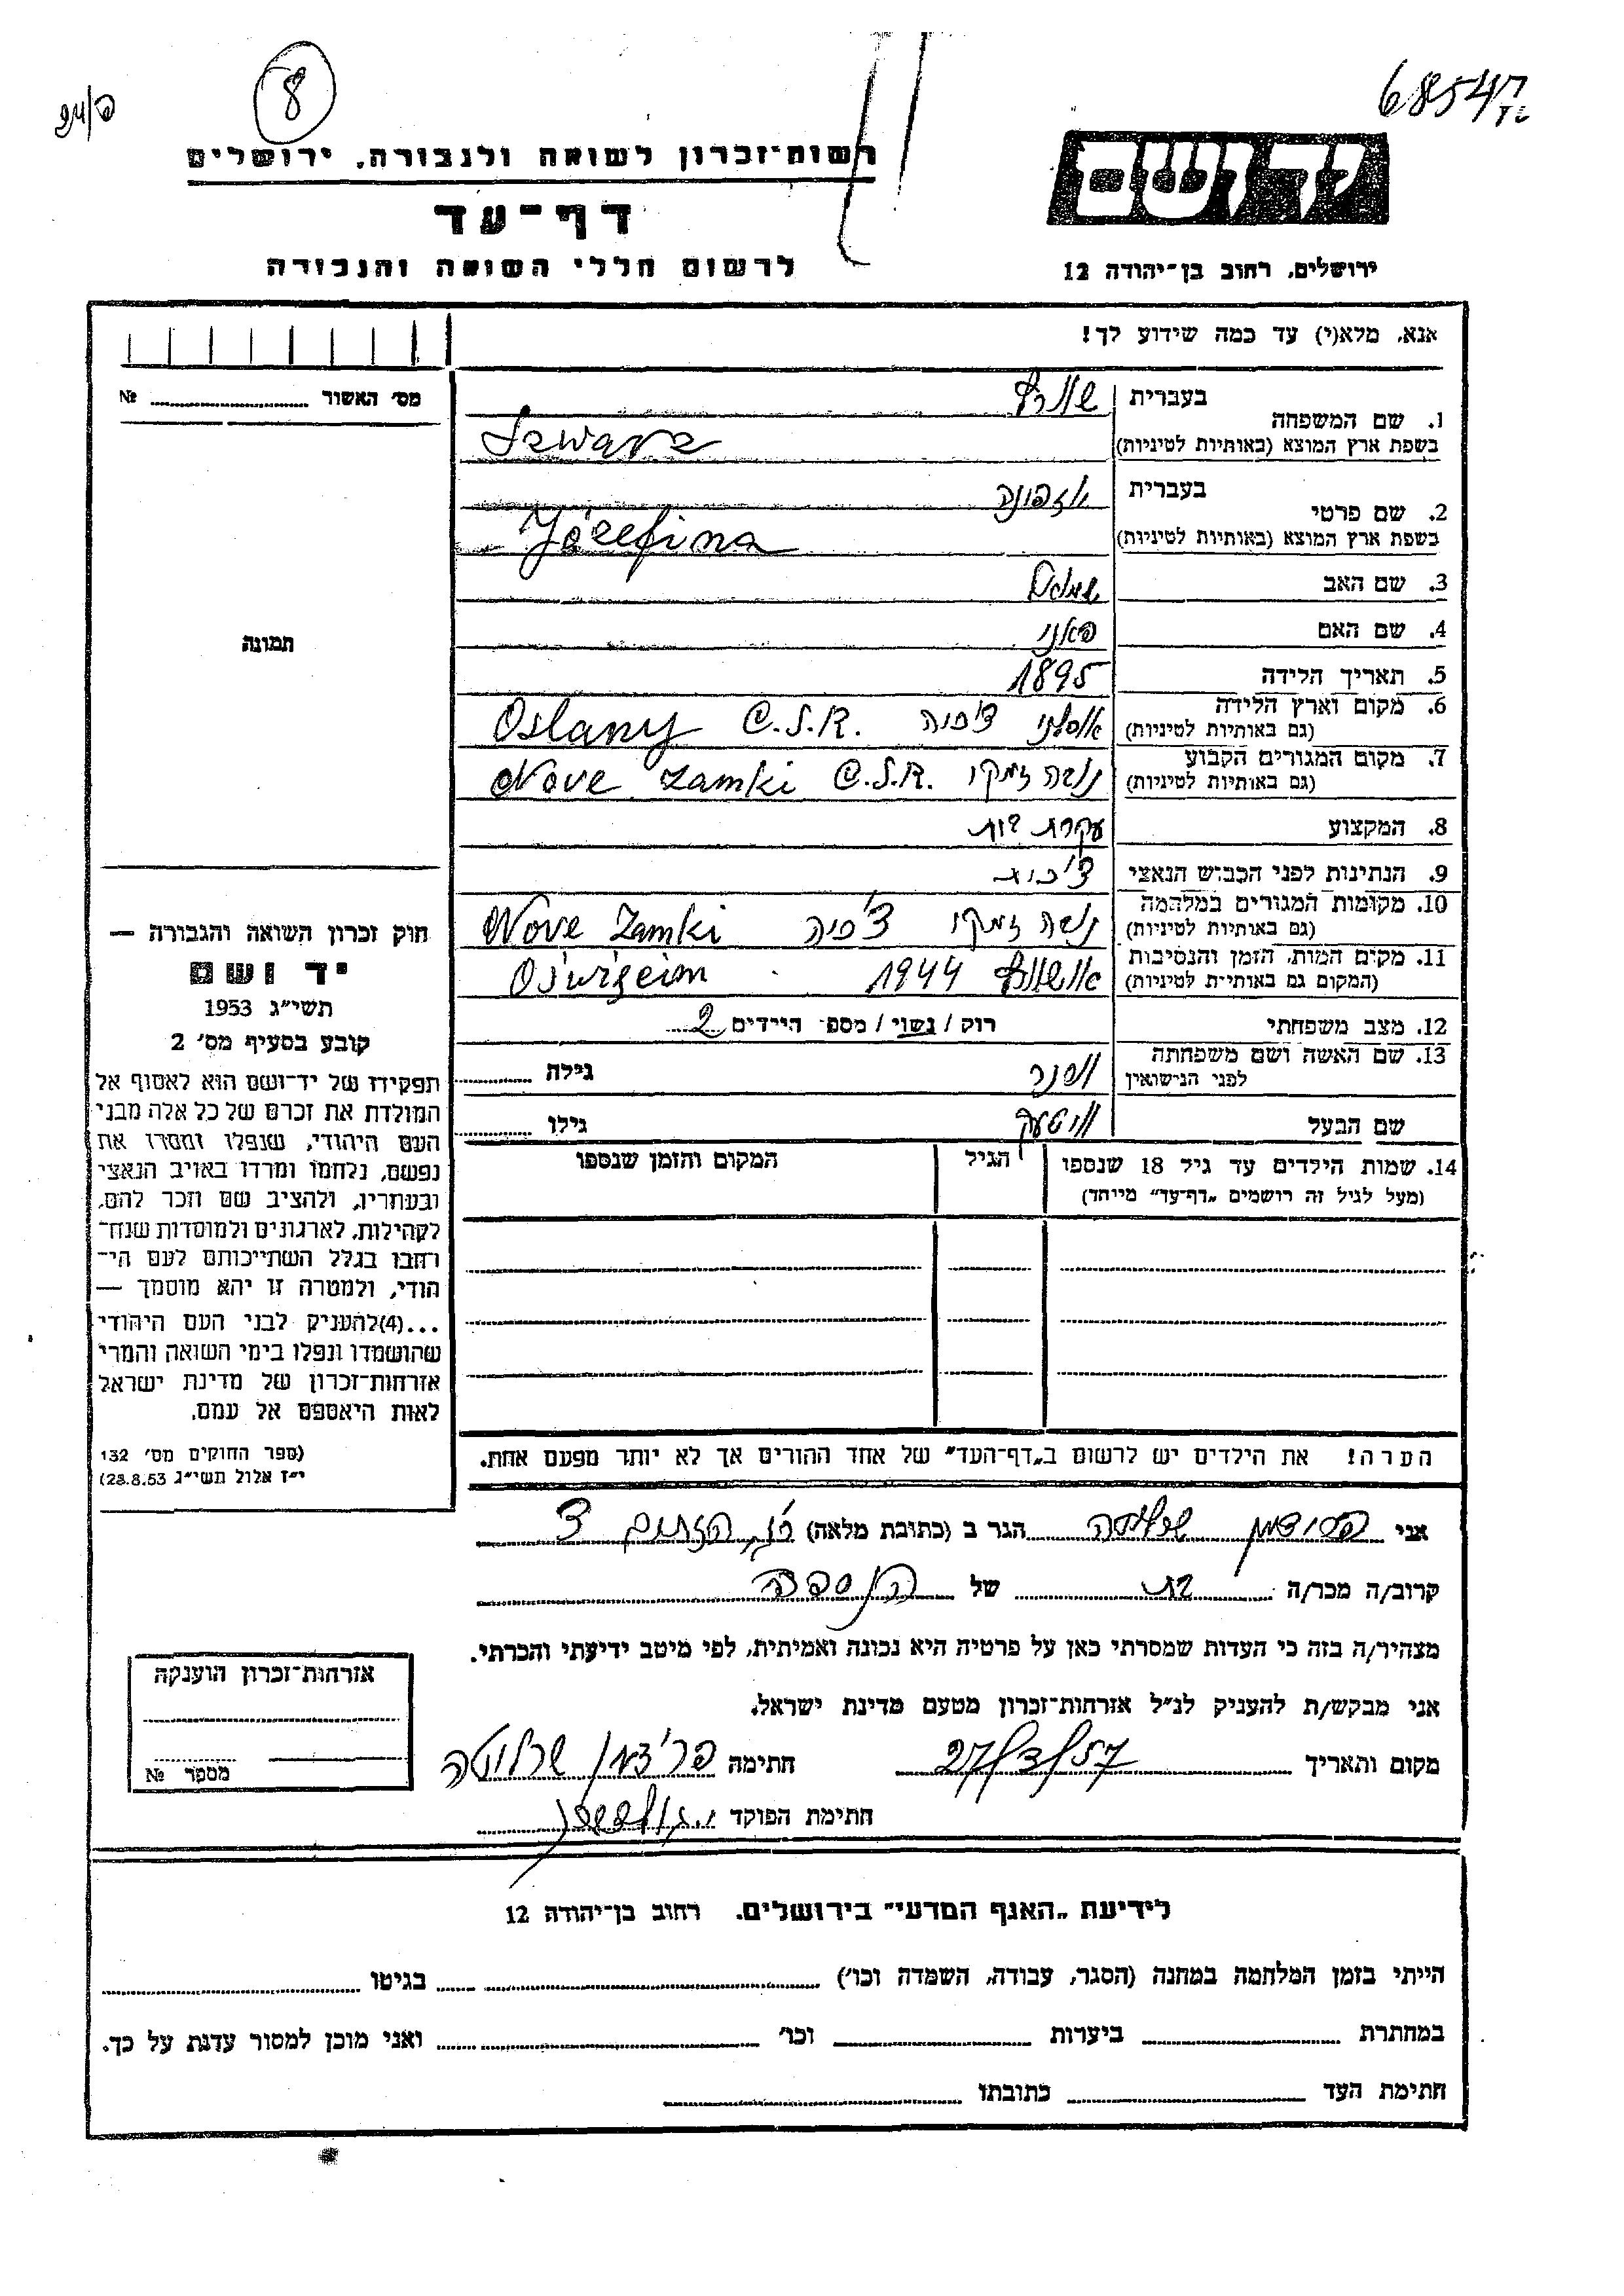 8
68547
רשות־זכרון לשואה ולגבורה, ירושלים
יד ושם
דף־עד
לרשום חללי השואה והגבורה
ירושלים, רחוב בן־יהודה 12
אנא, מלא(י) עד כמה שידוע לך!
מס׳ האשור № 
1. שם המשפחה
בעברית שוורץ
בשפת ארץ המוצא (באותיות לטיניות) Szwarz
2. שם פרטי
בעברית יוזפינה
בשפת ארץ המוצא (באותיות לטיניות) Józefina
3. שם האב
4. שם האם פאני
5. תאריך הלידה 1895
6. מקום וארץ הלידה
(גם באותיות לטיניות) אוסלני צ׳כיה Oslany C.S.R.
7. מקום המגורים הקבוע
(גם באותיות לטיניות) נובה זמקי Nove Zamki C.S.R.
8. המקצוע עקרת בית
9. הנתינות לפני הכבוש הנאצי צ׳כית
10. מקומות המגורים במלחמה
(גם באותיות לטיניות) נובה זמקי צ׳כיה Nove Zamki
11. מקום המות, הזמן והנסיבות
(המקום גם באותיות לטיניות) אושוויץ 1944 Oświęcim
12. מצב משפחתי רוק / נשוי / מספ׳ הילדים 2
13. שם האשה ושם משפחתה
לפני הנישואין גילה
שם הבעל גילו
14. שמות הילדים עד גיל 18 שנספו
(מעל לגיל זה רושמים „דף־עד” מיוחד)
הגיל
המקום והזמן שנספו
הערה! את הילדים יש לרשום ב„דף־העד” של אחד ההורים אך לא יותר מפעם אחת.
תמונה
חוק זכרון השואה והגבורה —
יד ושם
תשי״ג 1953
קובע בסעיף מס׳ 2
תפקידו של יד־ושם הוא לאסוף אל
המולדת את זכרם של כל אלה מבני
העם היהודי, שנפלו ומסרו את
נפשם, נלחמו ומרדו באויב הנאצי
ובעוזריו, ולהציב שם וזכר להם,
לקהילות, לארגונים ולמוסדות שנח־
רבו בגלל השתייכותם לעם הי־
הודי, ולמטרה זו יהא מוסמך —
...(4)להעניק לבני העם היהודי
שהושמדו ונפלו בימי השואה והמרי
אזרחות־זכרון של מדינת ישראל
לאות היאספם אל עמם.
(ספר החוקים מס׳ 132
י״ז אלול תשי״ג 28.8.53)
אני הגר ב (כתובת מלאה)
קרוב/ה מכר/ה בת של הנספה
מצהיר/ה בזה כי העדות שמסרתי כאן על פרטיה היא נכונה ואמיתית, לפי מיטב ידיעתי והכרתי.
אני מבקש/ת להעניק לנ״ל אזרחות־זכרון מטעם מדינת ישראל.
מקום ותאריך חתימה
חתימת הפוקד
אזרחות־זכרון הוענקה
מספר №
לידיעת „האגף המדעי” בירושלים. רחוב בן־יהודה 12
הייתי בזמן המלחמה במחנה (הסגר, עבודה, השמדה וכו׳) בגיטו
במחתרת ביערות וכו׳ ואני מוכן למסור עדות על כך.
חתימת העד כתובתו